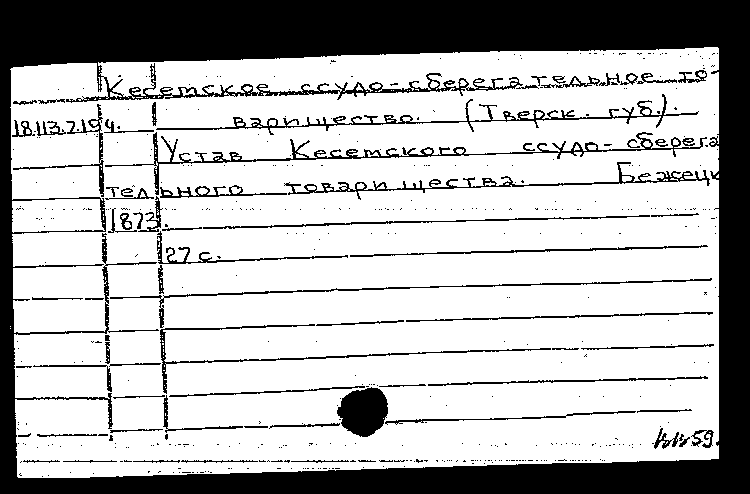 Кесемское ссудо-сберегательное то-
18.113.7.194. варищество. (Тверск. губ.).
Устав Кесемского ссудо-сберега
тельного товарищества. Бежецк
1873.
27 с.
59.